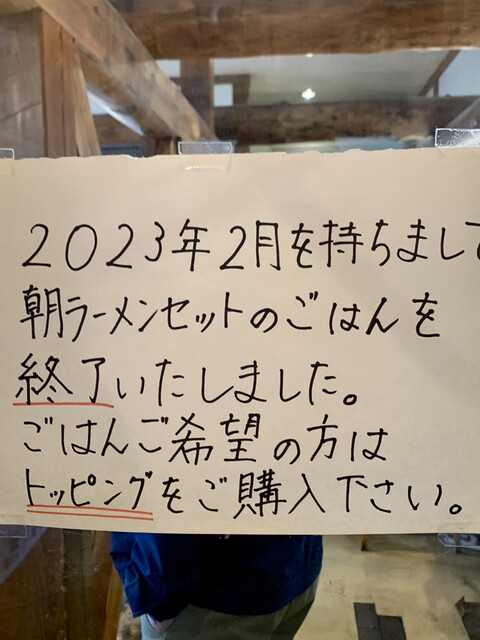 2023年2月を持ちまして
朝ラーメンセットのごはんを
終了いたしました。
ごはんご希望の方は
トッピングをご購入下さい。